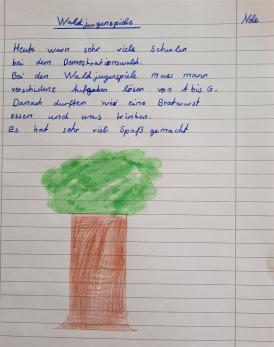 Waldjugenspiele
Nele
Heute warn sehr viele Schulen
bei dem Demostrationswald.
Bei den Waldjugenspiele muss mann
verschidene Aufgaben lösen von A bis G.
Danach durften wir eine Bratwurst
essen und was trinken.
Es hat sehr viel Spaß gemacht